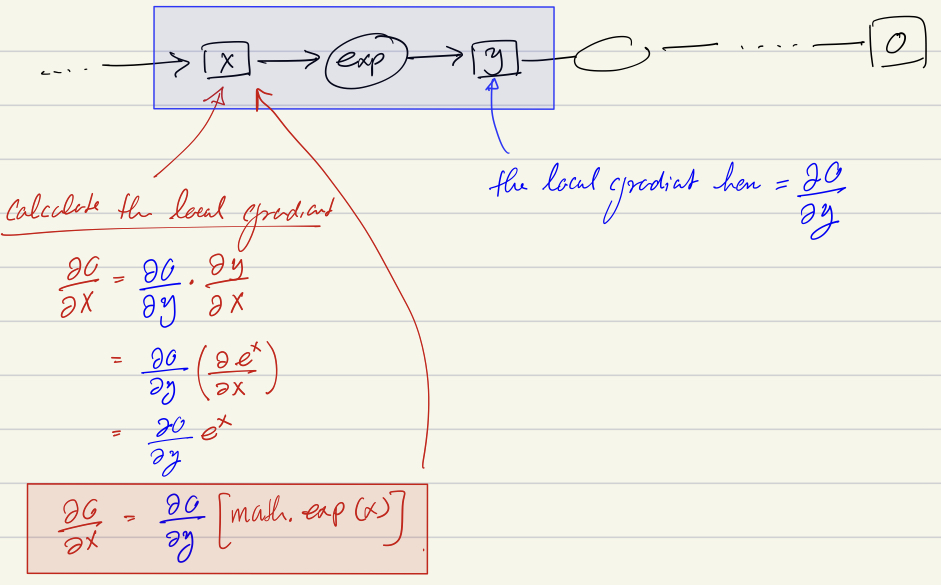 .... x exp y .... O
the local gradiat hen = ∂O/∂y
Calculate the local gradiant
∂O/∂x = ∂O/∂y · ∂y/∂x
= ∂O/∂y (∂e^x/∂x)
= ∂O/∂y e^x
∂O/∂x = ∂O/∂y [math.exp(x)].